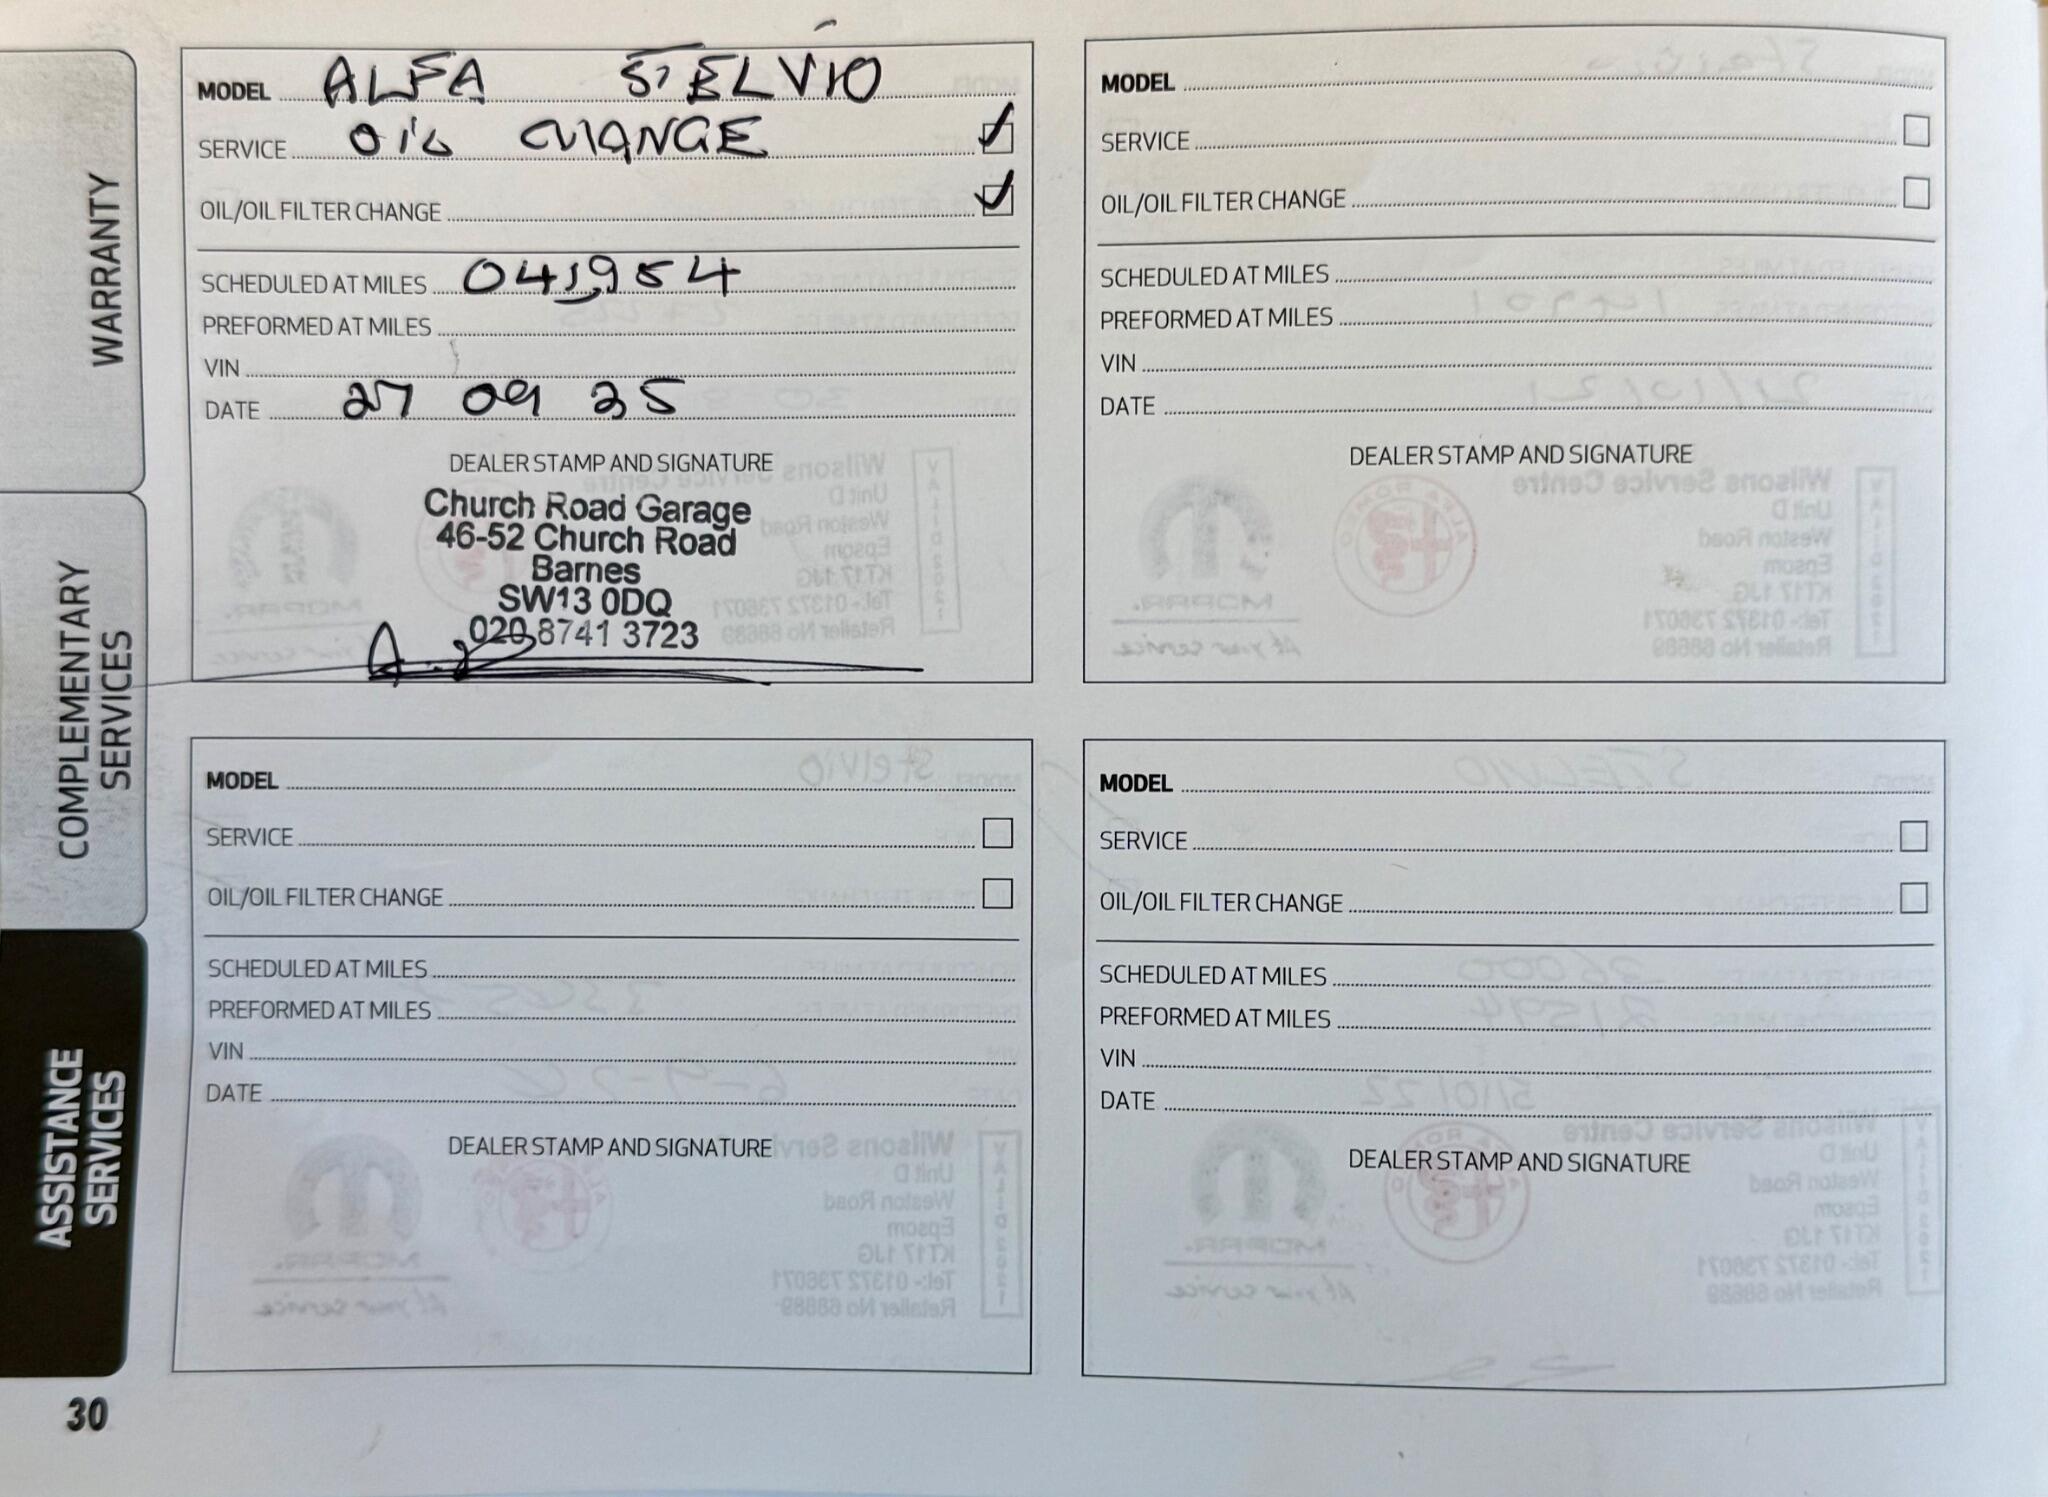 WARRANTY
COMPLEMENTARY
SERVICES
ASSISTANCE
SERVICES
30
MODEL ALFA STELVIO
SERVICE OIL CHANGE
OIL/OIL FILTER CHANGE
SCHEDULED AT MILES 041,954
PREFORMED AT MILES
VIN
DATE 27 09 25
DEALER STAMP AND SIGNATURE
Church Road Garage
46-52 Church Road
Barnes
SW13 0DQ
020 8741 3723
MODEL
SERVICE
OIL/OIL FILTER CHANGE
SCHEDULED AT MILES
PREFORMED AT MILES
VIN
DATE
DEALER STAMP AND SIGNATURE
MODEL
SERVICE
OIL/OIL FILTER CHANGE
SCHEDULED AT MILES
PREFORMED AT MILES
VIN
DATE
DEALER STAMP AND SIGNATURE
MODEL
SERVICE
OIL/OIL FILTER CHANGE
SCHEDULED AT MILES
PREFORMED AT MILES
VIN
DATE
DEALER STAMP AND SIGNATURE